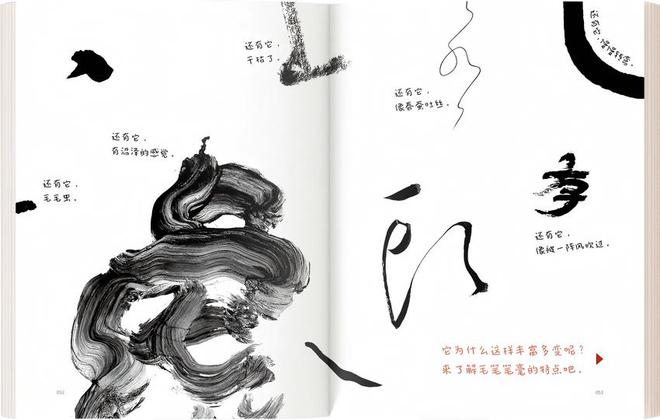 还有它，
干枯了。
还有它，
有沼泽的感觉。
还有它，
毛毛虫。
还有它，
像春蚕吐丝。
还有它，
像被一阵风吹过。
它为什么这样丰富多变呢？
来了解毛笔笔毫的特点吧。
052
053